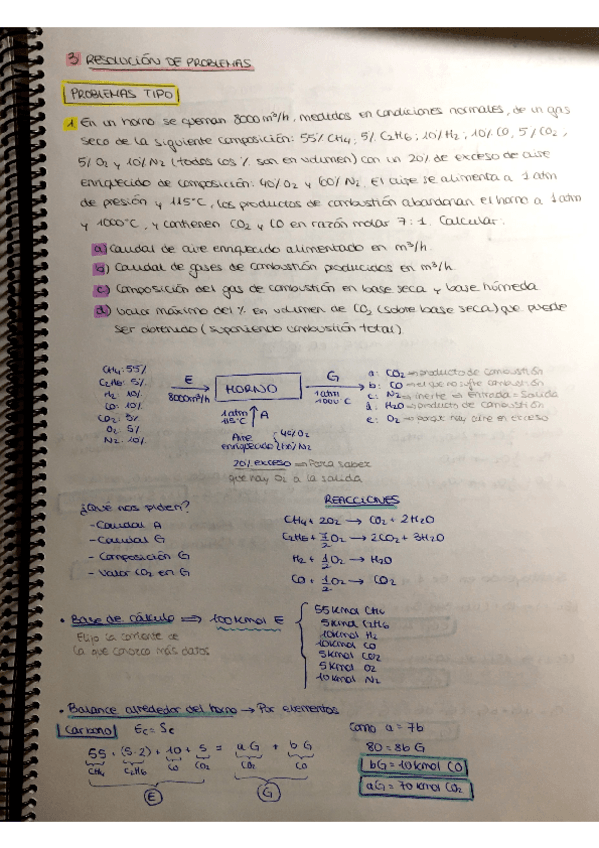 3 RESOLUCIÓN DE PROBLEMAS
PROBLEMAS TIPO
1. En un horno se queman 8000 m³/h, medidos en condiciones normales, de un gas
seco de la siguiente composición: 55% CH4; 5% C2H6; 10% H2; 10% CO, 5% CO2,
5% O2 y 10% N2 (todos los % son en volumen) con un 20% de exceso de aire
enriquecido de composición: 40% O2 y 60% N2. El aire se alimenta a 1 atm
de presión y 115°C, los productos de combustión abandonan el horno a 1 atm
y 1000°C, y contienen CO2 y CO en razón molar 7:1. Calcular:
a) Caudal de aire enriquecido alimentado en m³/h.
b) Caudal de gases de combustión producidos en m³/h
c) Composición del gas de combustión en base seca y base húmeda
d) Valor máximo del % en volumen de CO2 (sobre base seca) que puede
ser obtenido (suponiendo combustión total)
CH4: 55%
C2H6: 5%
H2: 10%
CO: 10%
CO2: 5%
O2: 5%
N2: 10%
E
8000m³/h
HORNO
G
1atm
1000°C
1atm
115°C
A
Aire
enriquecido
40% O2
60% N2
20% exceso ⇒ Para saber
que hay O2 a la salida
a: CO2 → producto de combustión
b: CO → el que no sufre combustión
c: N2 → inerte ⇒ Entrada = Salida
d: H2O → producto de combustión
e: O2 → porque hay aire en exceso
¿Qué nos piden?
- Caudal A
- Caudal G
- Composición G
- Valor CO2 en G
REACCIONES
CH4 + 2O2 → CO2 + 2H2O
C2H6 + 7/2 O2 → 2CO2 + 3H2O
H2 + 1/2 O2 → H2O
CO + 1/2 O2 → CO2
• Base de cálculo ⇒ 100 Kmol E
Elijo la corriente de
la que conozco más datos
55 Kmol CH4
5 Kmol C2H6
10 Kmol H2
10 Kmol CO
5 Kmol CO2
5 Kmol O2
10 Kmol N2
• Balance alrededor del horno → Por elementos
Carbono Ec = Sc
55 + (5·2) + 10 + 5 = aG + bG
CH4 C2H6 CO CO2 CO2 CO
E G
Como a = 7b
80 = 8b G
bG = 10 Kmol CO
aG = 70 Kmol CO2